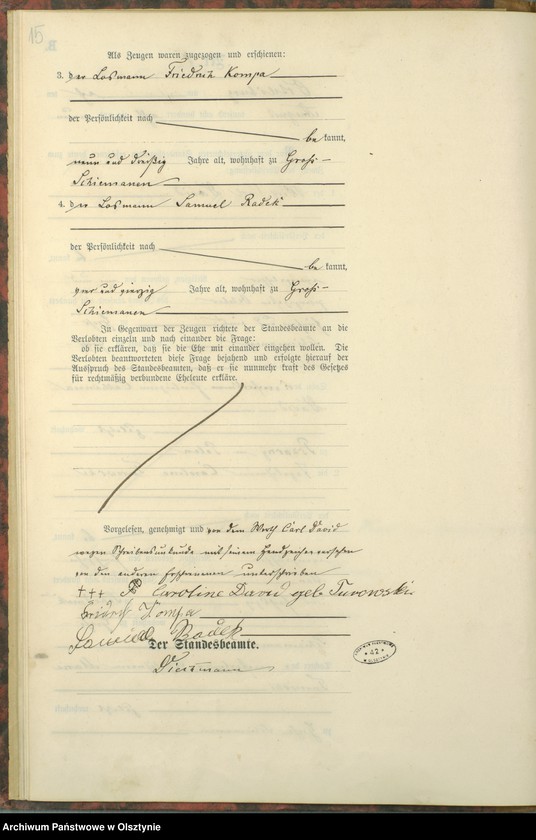 15
Als Zeugen waren zugezogen und erschienen:
3. der Losmann Friedrich Kompa
der Persönlichkeit nach
be kannt,
neun und dreißig Jahre alt, wohnhaft zu Groß-
Schiemanen
4. der Losmann Samuel Radek
der Persönlichkeit nach
be kannt,
und vierzig Jahre alt, wohnhaft zu Groß-
Schiemanen
In Gegenwart der Zeugen richtete der Standesbeamte an die
Verlobten einzeln und nach einander die Frage:
ob sie erklären, daß sie die Ehe mit einander eingehen wollen. Die
Verlobten beantworteten diese Frage bejahend und erfolgte hierauf der
Ausspruch des Standesbeamten, daß er sie nunmehr kraft des Gesetzes
für rechtmäßig verbundene Eheleute erkläre.
Vorgelesen, genehmigt und von dem Wirth Carl David
wegen Schreibensunkunde mit seinem Handzeichen versehen
von den anderen Erschienenen unterschrieben
+++ Caroline David geb Turowski
Friedrich Kompa
Samuel Radek
Der Standesbeamte.
42
Archiwum Państwowe w Olsztynie